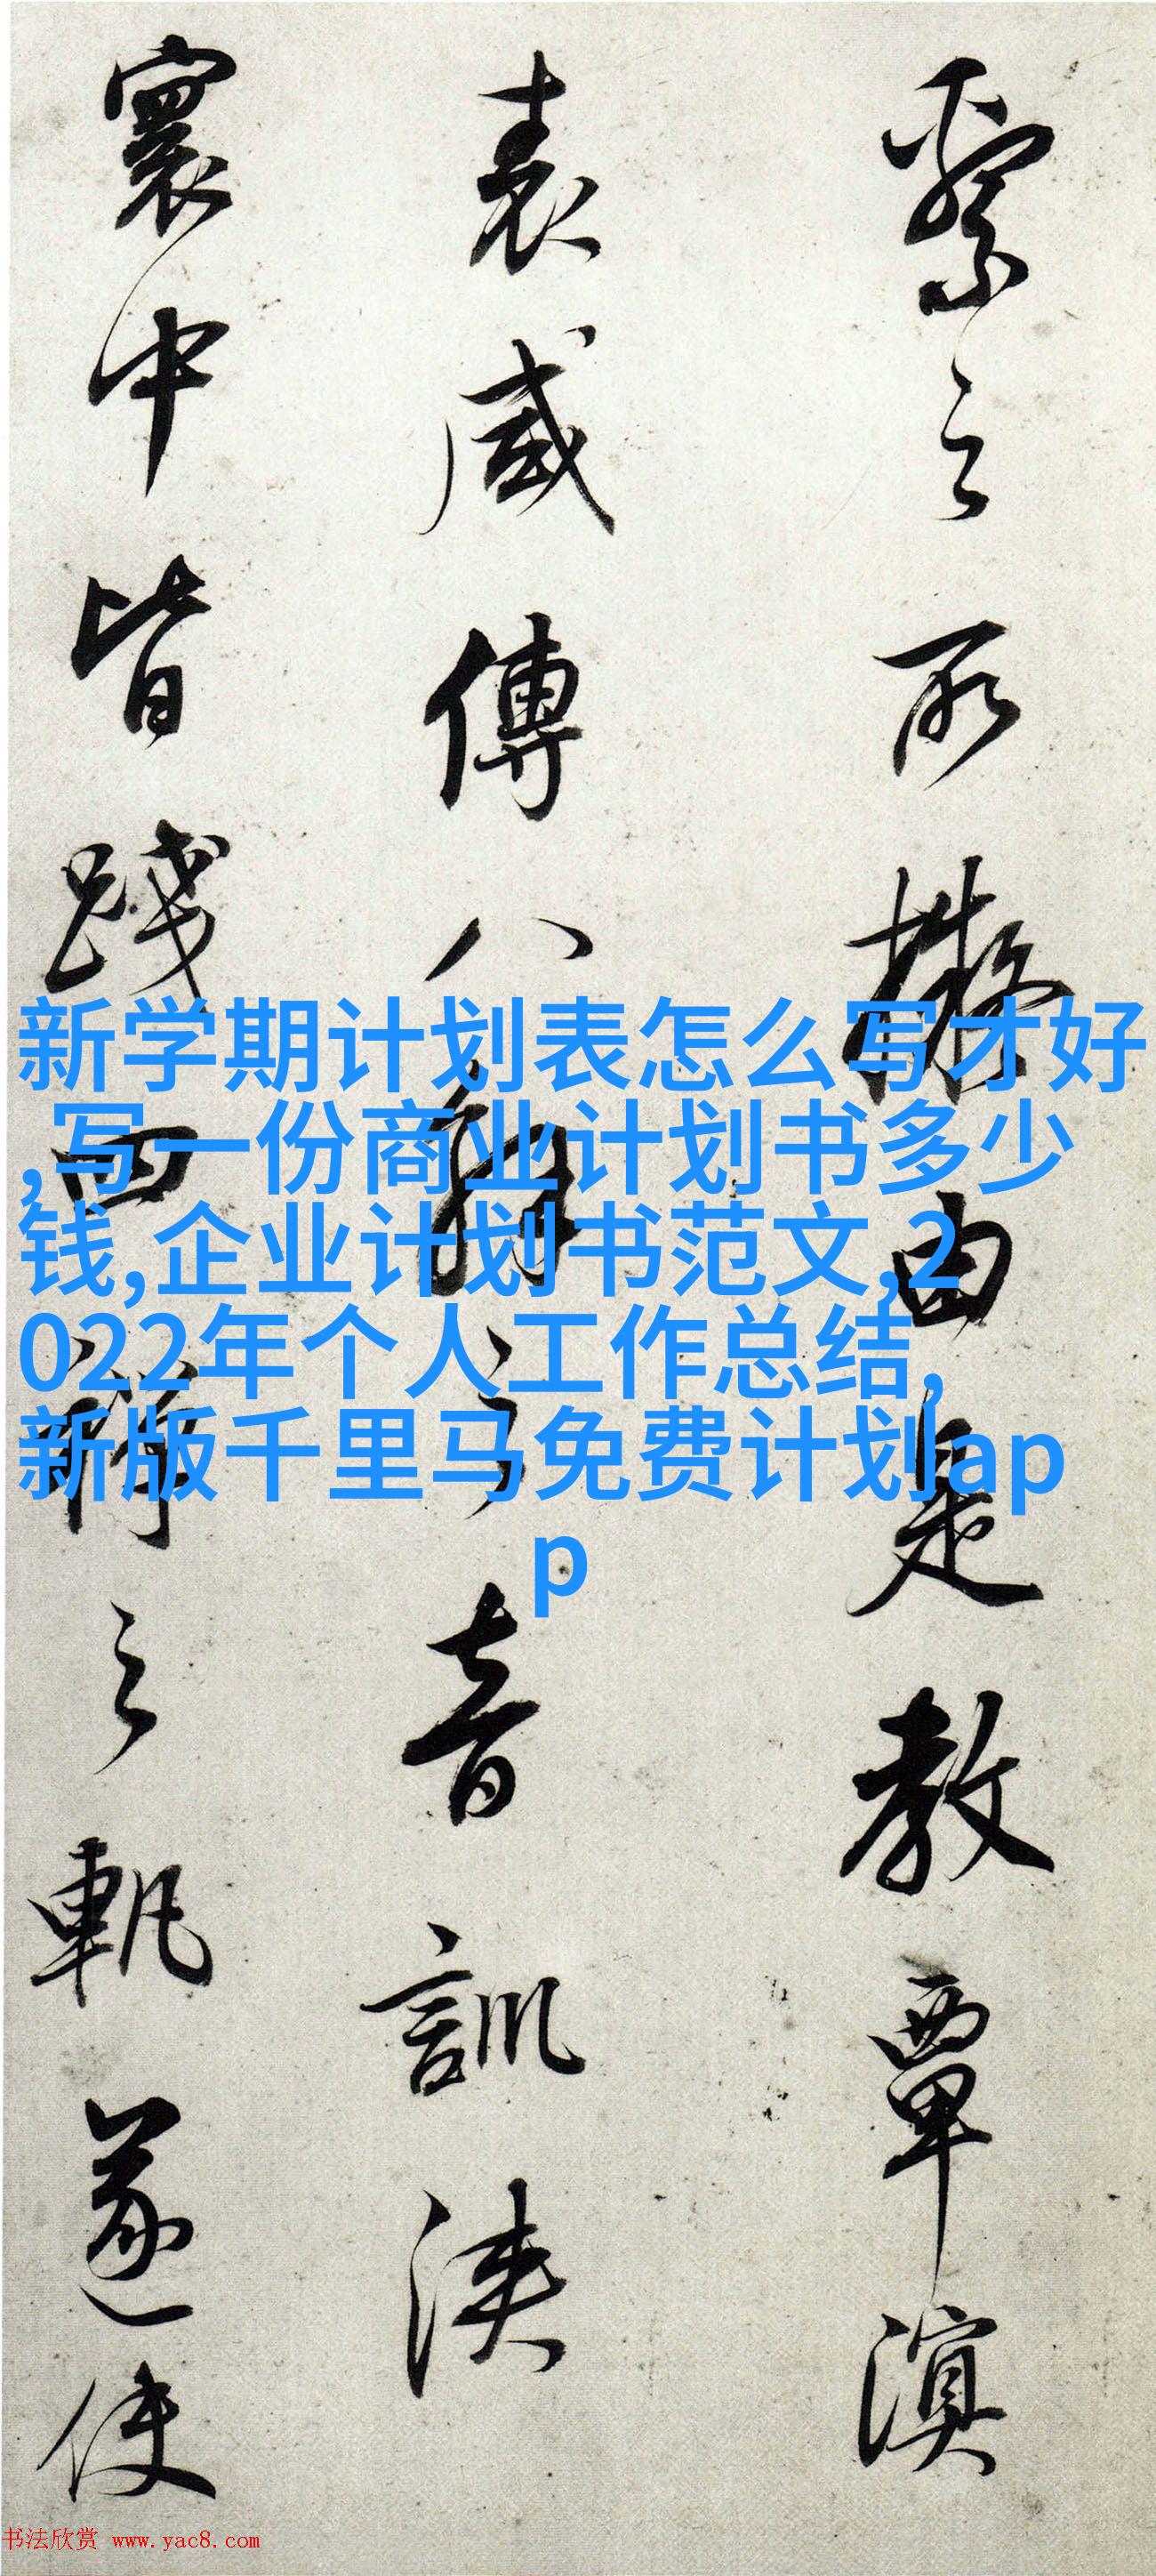 繄之所擬由是教覃溟
表咸傳八解之音訓浹
寰中皆踐四禪之軌遂使
新学期计划表怎么写才好
,写一份商业计划书多少
钱,企业计划书范文,2
022年个人工作总结,
新版千里马免费计划ap
p
书法欣赏 www.yac8.com